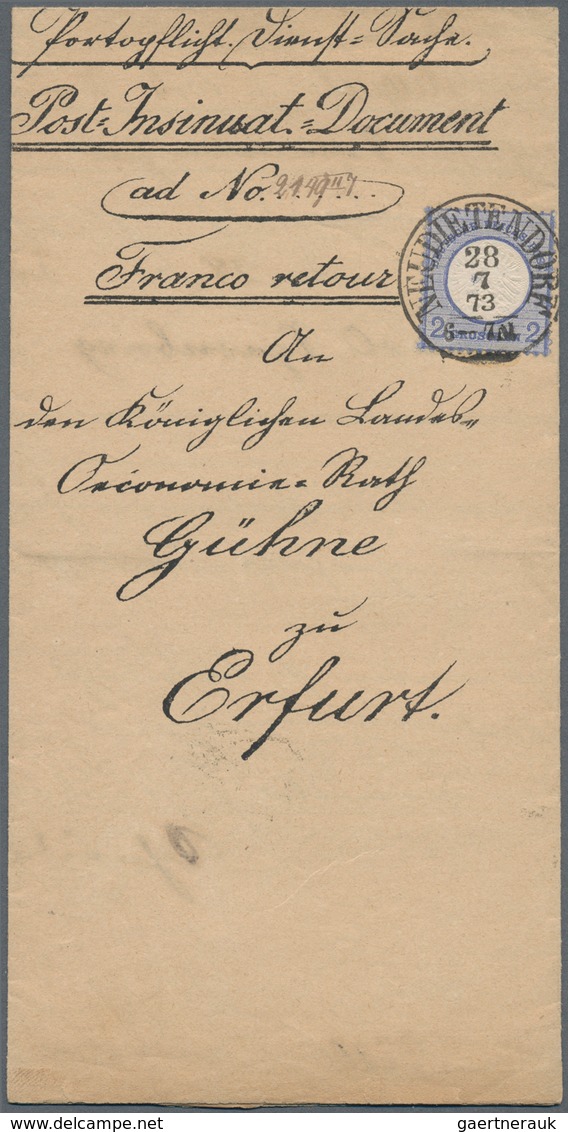 Portopflicht. Dienst-Sache.
Post-Insinuat.-Document
ad No.
Franco retour
NEUDIETENDORF
28
7
73
6 - 7N
2 GROSCHEN 2
An
den Königlichen Landes-
Oeconomie-Rath
Gühne
zu
Erfurt.
gaertnerauk